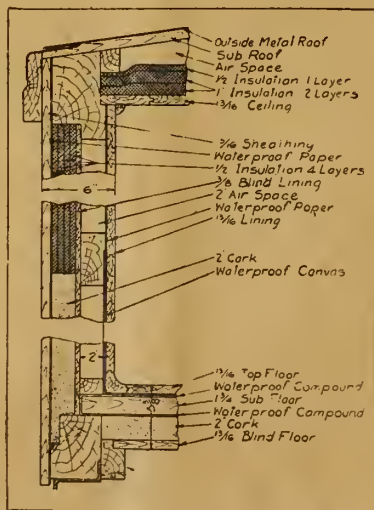 Outside Metal Roof
Sub Roof
Air Space
1/2 Insulation 1 Layer
1" Insulation 2 Layers
13/16 Ceiling
13/16 Sheathing
Waterproof Paper
1/2 Insulation 4 Layers
3/8 Blind Lining
6"
2" Air Space
Waterproof Paper
13/16 Lining
2" Cork
Waterproof Canvas
2"
13/16 Top Floor
Waterproof Compound
1 3/4 Sub Floor
Waterproof Compound
2" Cork
13/16 Blind Floor